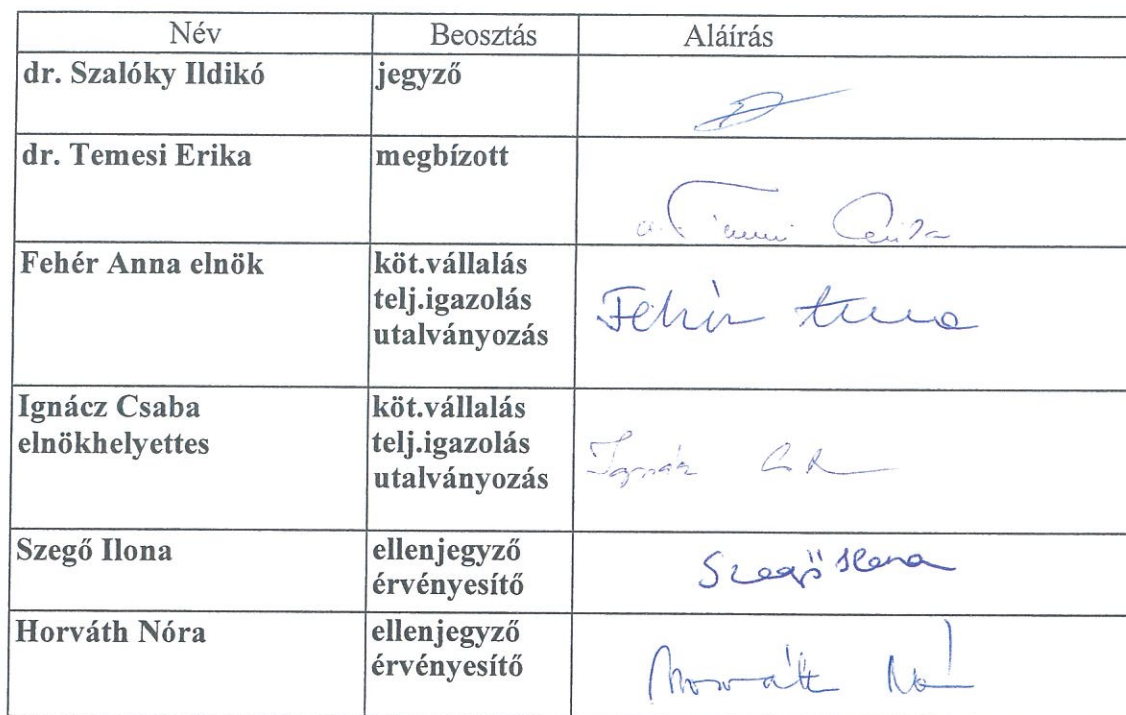 Név Beosztás Aláírás
dr. Szalóky Ildikó jegyző
dr. Temesi Erika megbízott
Fehér Anna elnök köt.vállalás
telj.igazolás
utalványozás
Fehér Anna
Ignácz Csaba köt.vállalás
elnökhelyettes telj.igazolás
utalványozás
Szegő Ilona ellenjegyző
érvényesítő
Szegő Ilona
Horváth Nóra ellenjegyző
érvényesítő
Horváth Nó